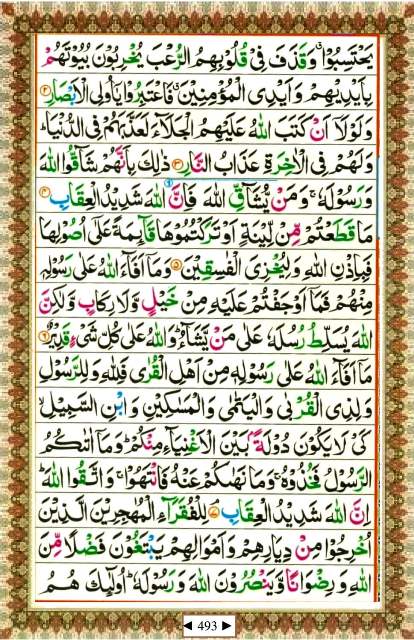 يَحْتَسِبُوْا ۗ وَقَذَفَ فِيْ قُلُوْبِهِمُ الرُّعْبَ يُخْرِبُوْنَ بُيُوْتَهُمْ
بِاَيْدِيْهِمْ وَاَيْدِي الْمُؤْمِنِيْنَ ۗ فَاعْتَبِرُوْا يٰۤاُولِي الْاَبْصَارِ ﴿۲﴾
وَلَوْلَاۤ اَنْ كَتَبَ اللّٰهُ عَلَيْهِمُ الْجَلَاۤءَ لَعَذَّبَهُمْ فِي الدُّنْيَا ؕ
وَلَهُمْ فِي الْاٰخِرَةِ عَذَابُ النَّارِ ﴿۳﴾ ذٰلِكَ بِاَنَّهُمْ شَآقُّوا اللّٰهَ
وَرَسُوْلَهٗ ۚ وَمَنْ يُّشَآقِّ اللّٰهَ فَاِنَّ اللّٰهَ شَدِيْدُ الْعِقَابِ ﴿۴﴾
مَا قَطَعْتُمْ مِّنْ لِّيْنَةٍ اَوْ تَرَكْتُمُوْهَا قَآئِمَةً عَلٰۤى اُصُوْلِهَا
فَبِاِذْنِ اللّٰهِ وَلِيُخْزِيَ الْفٰسِقِيْنَ ﴿۵﴾ وَمَاۤ اَفَآءَ اللّٰهُ عَلٰى رَسُوْلِهٖ
مِنْهُمْ فَمَاۤ اَوْجَفْتُمْ عَلَيْهِ مِنْ خَيْلٍ وَّلَا رِكَابٍ وَّلٰكِنَّ
اللّٰهَ يُسَلِّطُ رُسُلَهٗ عَلٰى مَنْ يَّشَآءُ ؕ وَاللّٰهُ عَلٰى كُلِّ شَيْءٍ قَدِيْرٌ ﴿۶﴾
مَاۤ اَفَآءَ اللّٰهُ عَلٰى رَسُوْلِهٖ مِنْ اَهْلِ الْقُرٰى فَلِلّٰهِ وَلِلرَّسُوْلِ
وَلِذِي الْقُرْبٰى وَالْيَتٰمٰى وَالْمَسٰكِيْنِ وَابْنِ السَّبِيْلِ ۙ
كَيْ لَا يَكُوْنَ دُوْلَةًۢ بَيْنَ الْاَغْنِيَآءِ مِنْكُمْ ؕ وَمَاۤ اٰتٰىكُمُ
الرَّسُوْلُ فَخُذُوْهُ ۚ وَمَا نَهٰىكُمْ عَنْهُ فَانْتَهُوْا ۚ وَاتَّقُوا اللّٰهَ ؕ
اِنَّ اللّٰهَ شَدِيْدُ الْعِقَابِ ﴿۷﴾ لِلْفُقَرَآءِ الْمُهٰجِرِيْنَ الَّذِيْنَ
اُخْرِجُوْا مِنْ دِيَارِهِمْ وَاَمْوَالِهِمْ يَبْتَغُوْنَ فَضْلًا مِّنَ
اللّٰهِ وَرِضْوَانًا وَّيَنْصُرُوْنَ اللّٰهَ وَرَسُوْلَهٗ ؕ اُولٰٓئِكَ هُمُ
◄ 493 ►